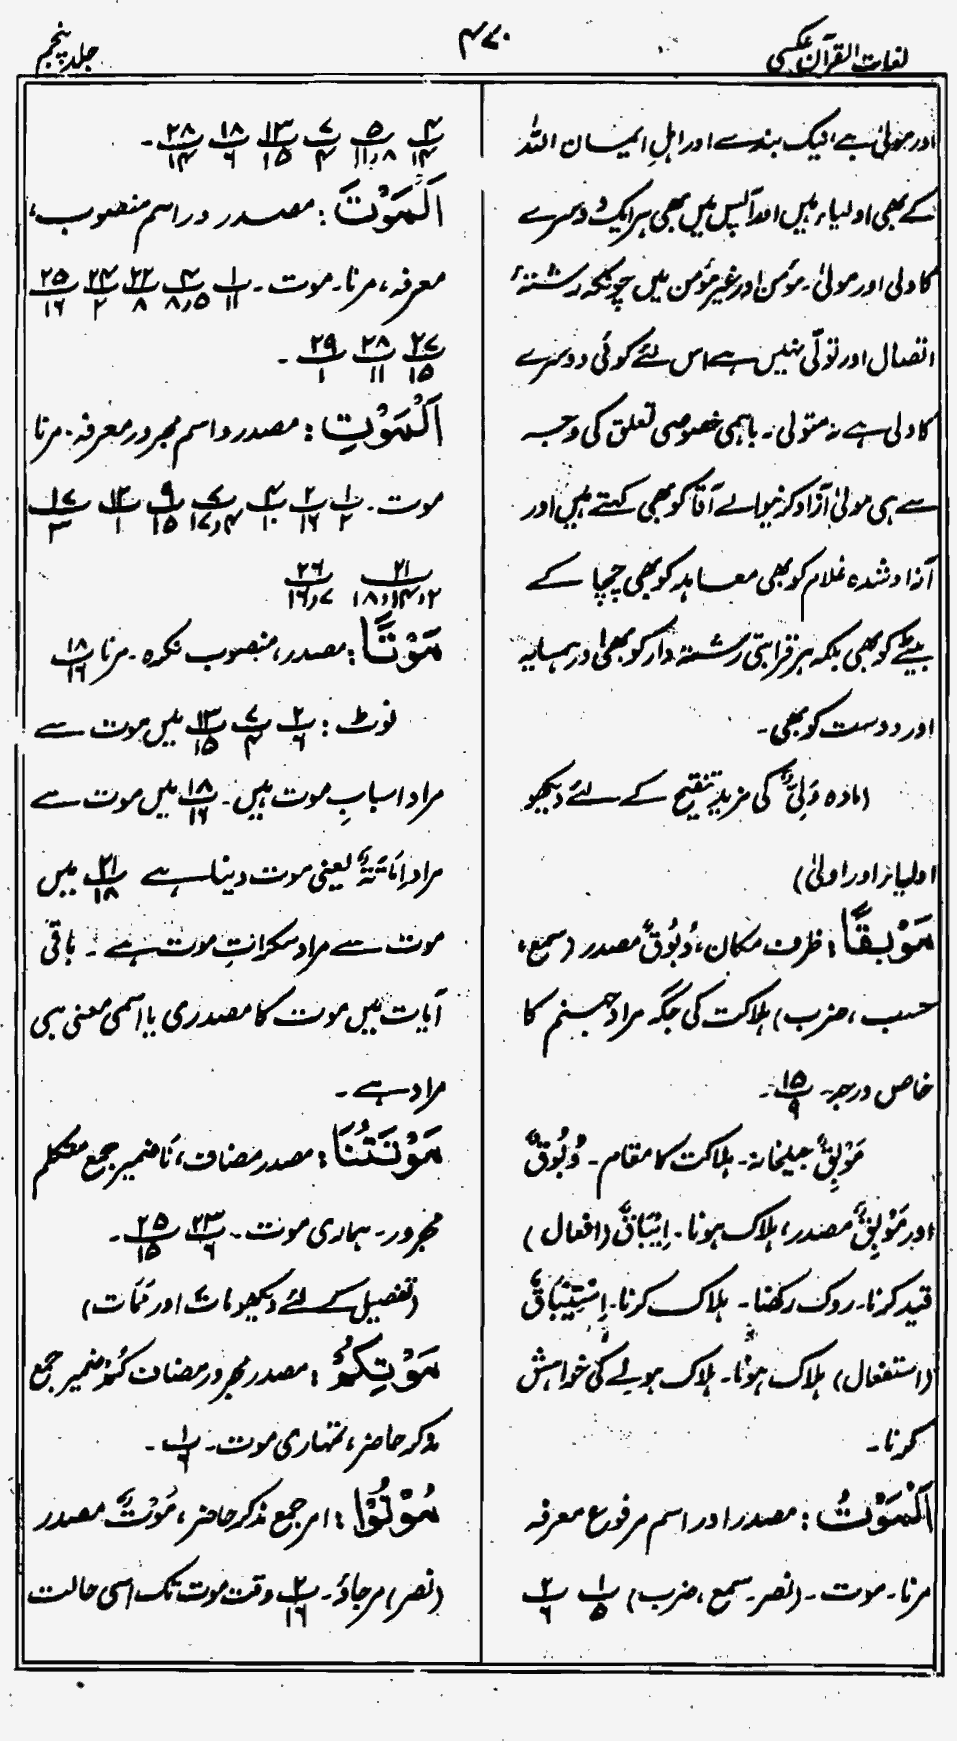 لغات القرآن عکسی
۴۷۰
جلد پنجم
اور مولیٰ ہے لیک بندے اور اہلِ ایمان اللہ
کے بھی اولیاء ہیں اور آپس میں بھی ہر ایک دوسرے
کا ولی اور مولیٰ۔ مؤمن اور غیر مؤمن میں چونکہ رشتۂ
اتصال اور تولّی نہیں ہے اس لئے کوئی دوسرے
کا ولی ہے نہ متولی۔ باہمی خصوصی تعلق کی وجہ
سے ہی مولیٰ آزاد کرنیوالے آقا کو بھی کہتے ہیں اور
آزاد شدہ غلام کو بھی معاہد کو بھی چچا کے
بیٹے کو بھی بلکہ ہر قرابتی رشتہ دار کو بھی اور ہمسایہ
اور دوست کو بھی۔
(مادہ وَلِیٌ کی مزید تنقیح کے لئے دیکھو
اولیاء اور اولیٰ)
مَوْبِقًا: ظرف مکان، وُبُوْقٌ مصدر (سمع،
حسب، ضرب) ہلاکت کی جگہ مراد جہنم کا
خاص درجہ۔ ۱۵/۹۔
مَوْبِقٌ جیلخانہ۔ ہلاکت کا مقام۔ وُبُوْقٌ
اور مَوْبِقٌ مصدر، ہلاک ہونا۔ اِیْبَاقٌ (افعال)
قید کرنا۔ روک رکھنا۔ ہلاک کرنا۔ اِسْتِیْبَاقٌ
(استفعال) ہلاک ہونا۔ ہلاک ہونے کی خواہش
کرنا۔
اَلْمَوْتُ: مصدر اور اسم مرفوع معرفہ
مرنا۔ موت۔ (نصر۔ سمع، ضرب) ۱/۵ ۲/۶
۴/۱۴ ۵/۸،۱۱ ۷/۴ ۱۳/۱۵ ۱۸/۶ ۲۸/۱۴۔
اَلْمَوْتَ: مصدر و اسم منصوب،
معرفہ، مرنا۔ موت۔ ۱/۱۱ ۴/۸،۵ ۲۲/۸ ۲۴/۲ ۲۵/۱۶
۲۷/۱۵ ۲۸/۱۱ ۲۹/۱۔
اَلْمَوْتِ: مصدر و اسم مجرور معرفہ۔ مرنا
موت۔ ۱/۲ ۲/۱۶ ۴/۱۰ ۷/۴،۱۷ ۹/۱۵ ۱۲/۱ ۱۷/۳
۲۱/۲،۱۴،۱۸ ۲۶/۷،۱۶
مَوْتًا: مصدر، منصوب نکرہ۔ مرنا ۱۸/۱۶
نوٹ: ۲/۶ ۷/۴ ۱۳/۱۵ میں موت سے
مراد اسبابِ موت ہیں۔ ۱۸/۱۶ میں موت سے
مراد اِمَاتَۃٌ یعنی موت دینا ہے ۲۱/۱۸ میں
موت سے مراد سکراتِ موت ہے۔ باقی
آیات میں موت کا مصدری یا اسمی معنی ہی
مراد ہے۔
مَوْتَتُنَا: مصدر مضاف، نَا ضمیر جمع متکلم
مجرور۔ ہماری موت۔ ۲۳/۶ ۲۵/۱۵۔
(تفصیل کے لئے دیکھو مات اور مَمَات)
مَوْتِکُمْ: مصدر مجرور مضاف کُمْ ضمیر جمع
مذکر حاضر، تمہاری موت۔ ۱/۶۔
مُوْتُوْا: امر جمع مذکر حاضر، مَوْتٌ مصدر
(نصر) مر جاؤ۔ ۲/۱۶ وقت موت تک اسی حالت